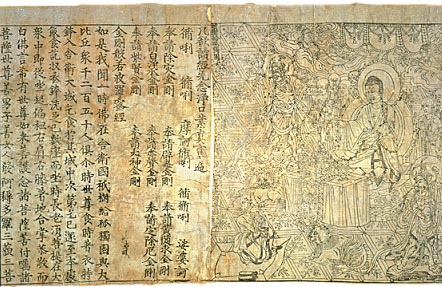 凡欲讀經先念淨口業真言一遍
脩唎 脩唎 摩訶脩唎 脩脩唎 娑婆訶
奉請除災金剛 奉請辟毒金剛
奉請黃隨求金剛 奉請白淨水金剛
奉請赤聲金剛 奉請定除厄金剛
奉請紫賢金剛 奉請大神金剛
金剛般若波羅蜜經
如是我聞一時佛在舍衛國祇樹給孤獨園與大
比丘眾千二百五十人俱尒時世尊食時著衣持
鉢入舍衛大城乞食於其城中次第乞已還至本處
飯食訖收衣鉢洗足已敷座而坐時長老須菩提在大
眾中即從座起偏袒右肩右膝著地合掌恭敬而
白佛言希有世尊如來善護念諸菩薩善付囑諸
菩薩世尊善男子善女人發阿耨多羅三藐三菩